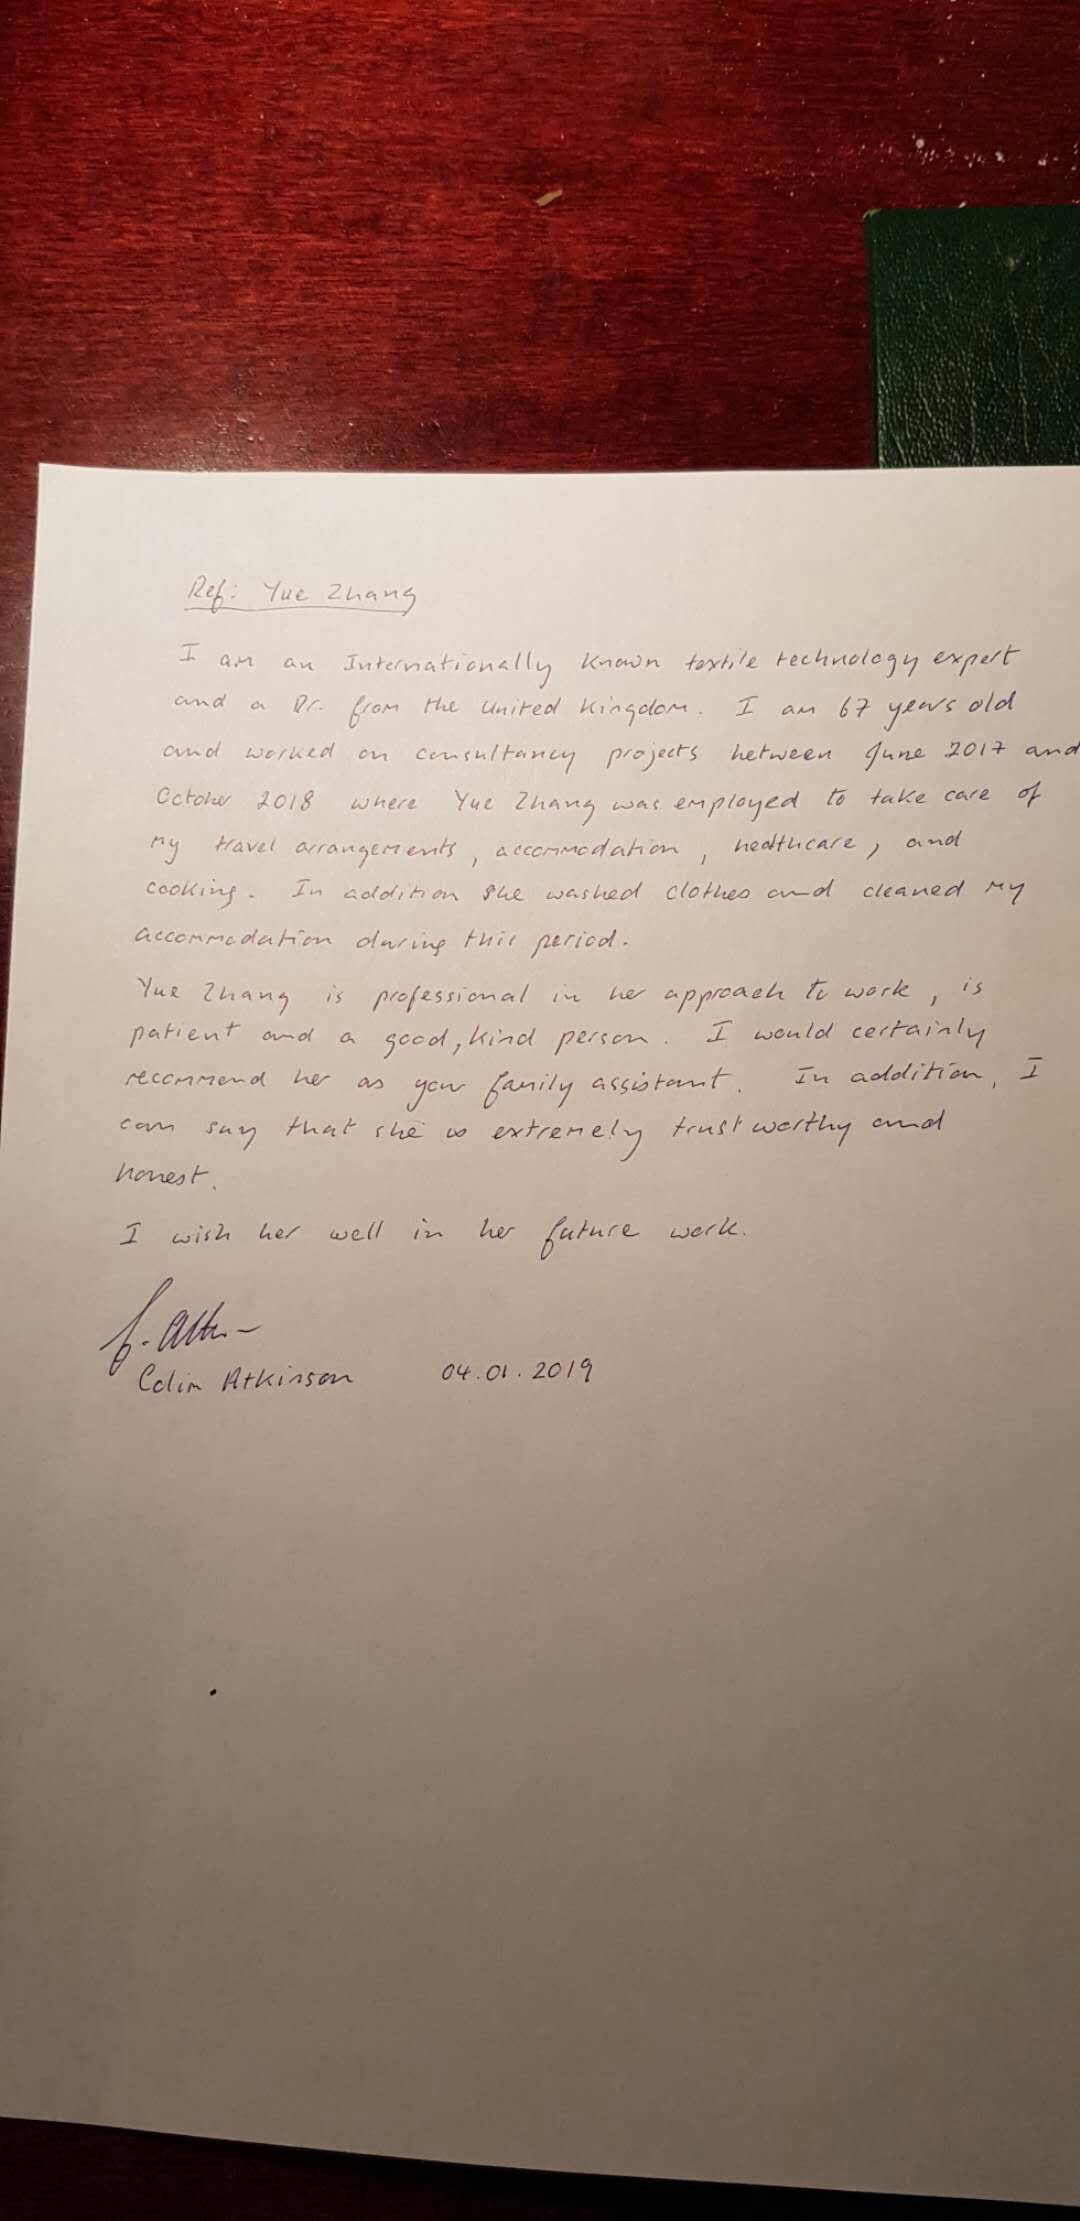 Ref: Yue Zhang
I am an Internationally known textile technology expert
and a Dr. from the United Kingdom. I am 67 years old
and worked on consultancy projects between June 2017 and
October 2018 where Yue Zhang was employed to take care of
my travel arrangements, accommodation, healthcare, and
cooking. In addition she washed clothes and cleaned my
accommodation during this period.
Yue Zhang is professional in her approach to work, is
patient and a good, kind person. I would certainly
recommend her as your family assistant. In addition, I
can say that she is extremely trustworthy and
honest.
I wish her well in her future work.
Colin Atkinson 04.01.2019